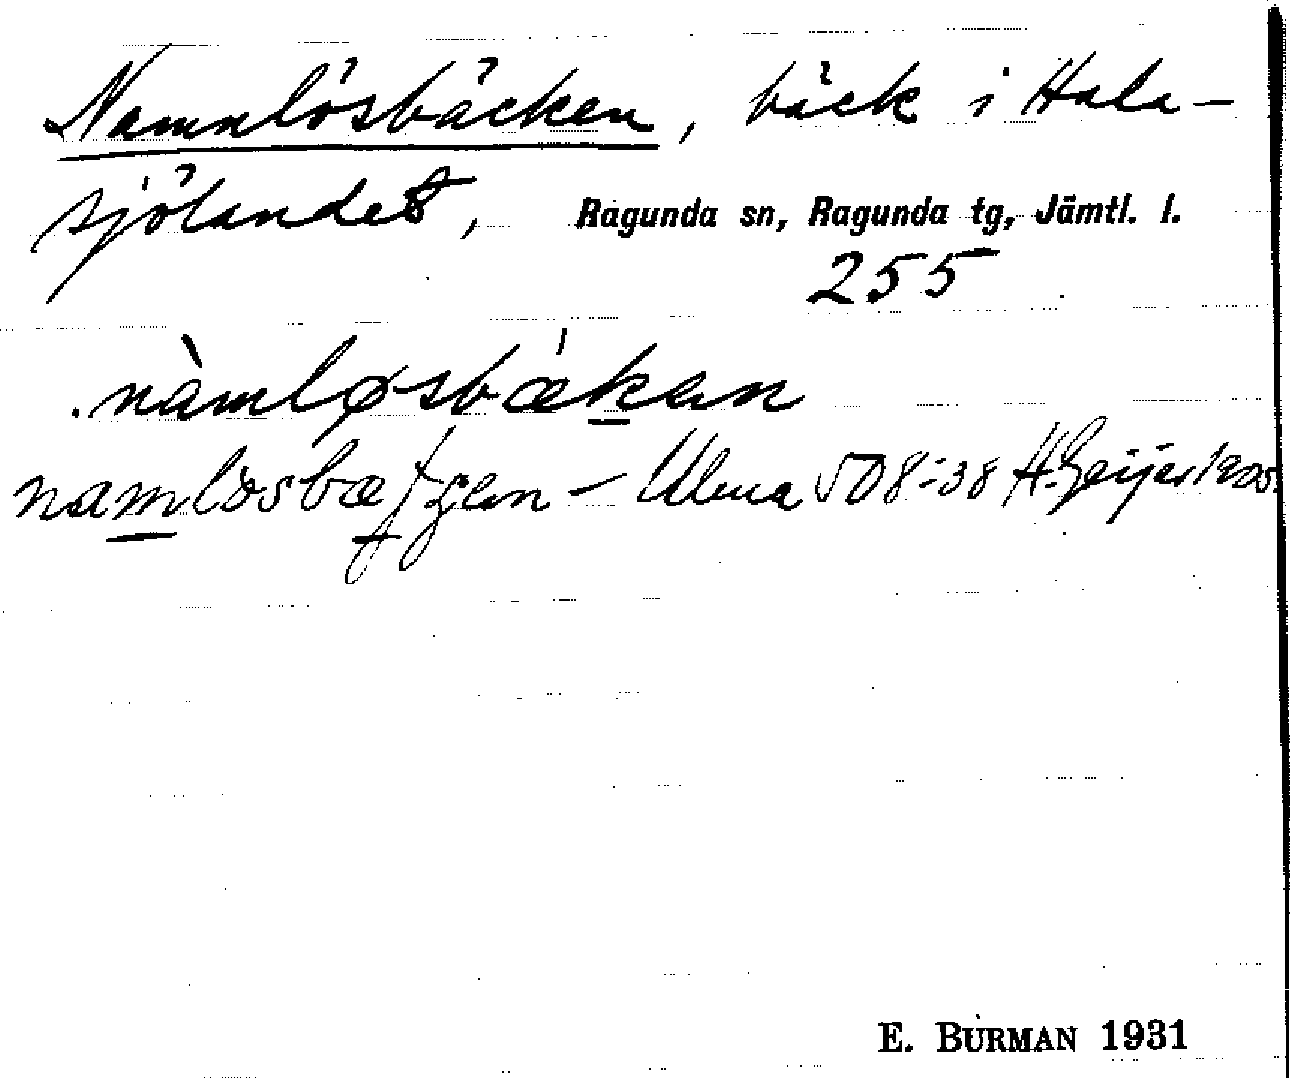 Namnlösbäcken, bäck i Hala-
sjölandet, Ragunda sn, Ragunda tg, Jämtl. l.
255
nàmløsbækan
namlosbæ – Ulma 508:38 H. Geijer 1905.
E. BURMAN 1931